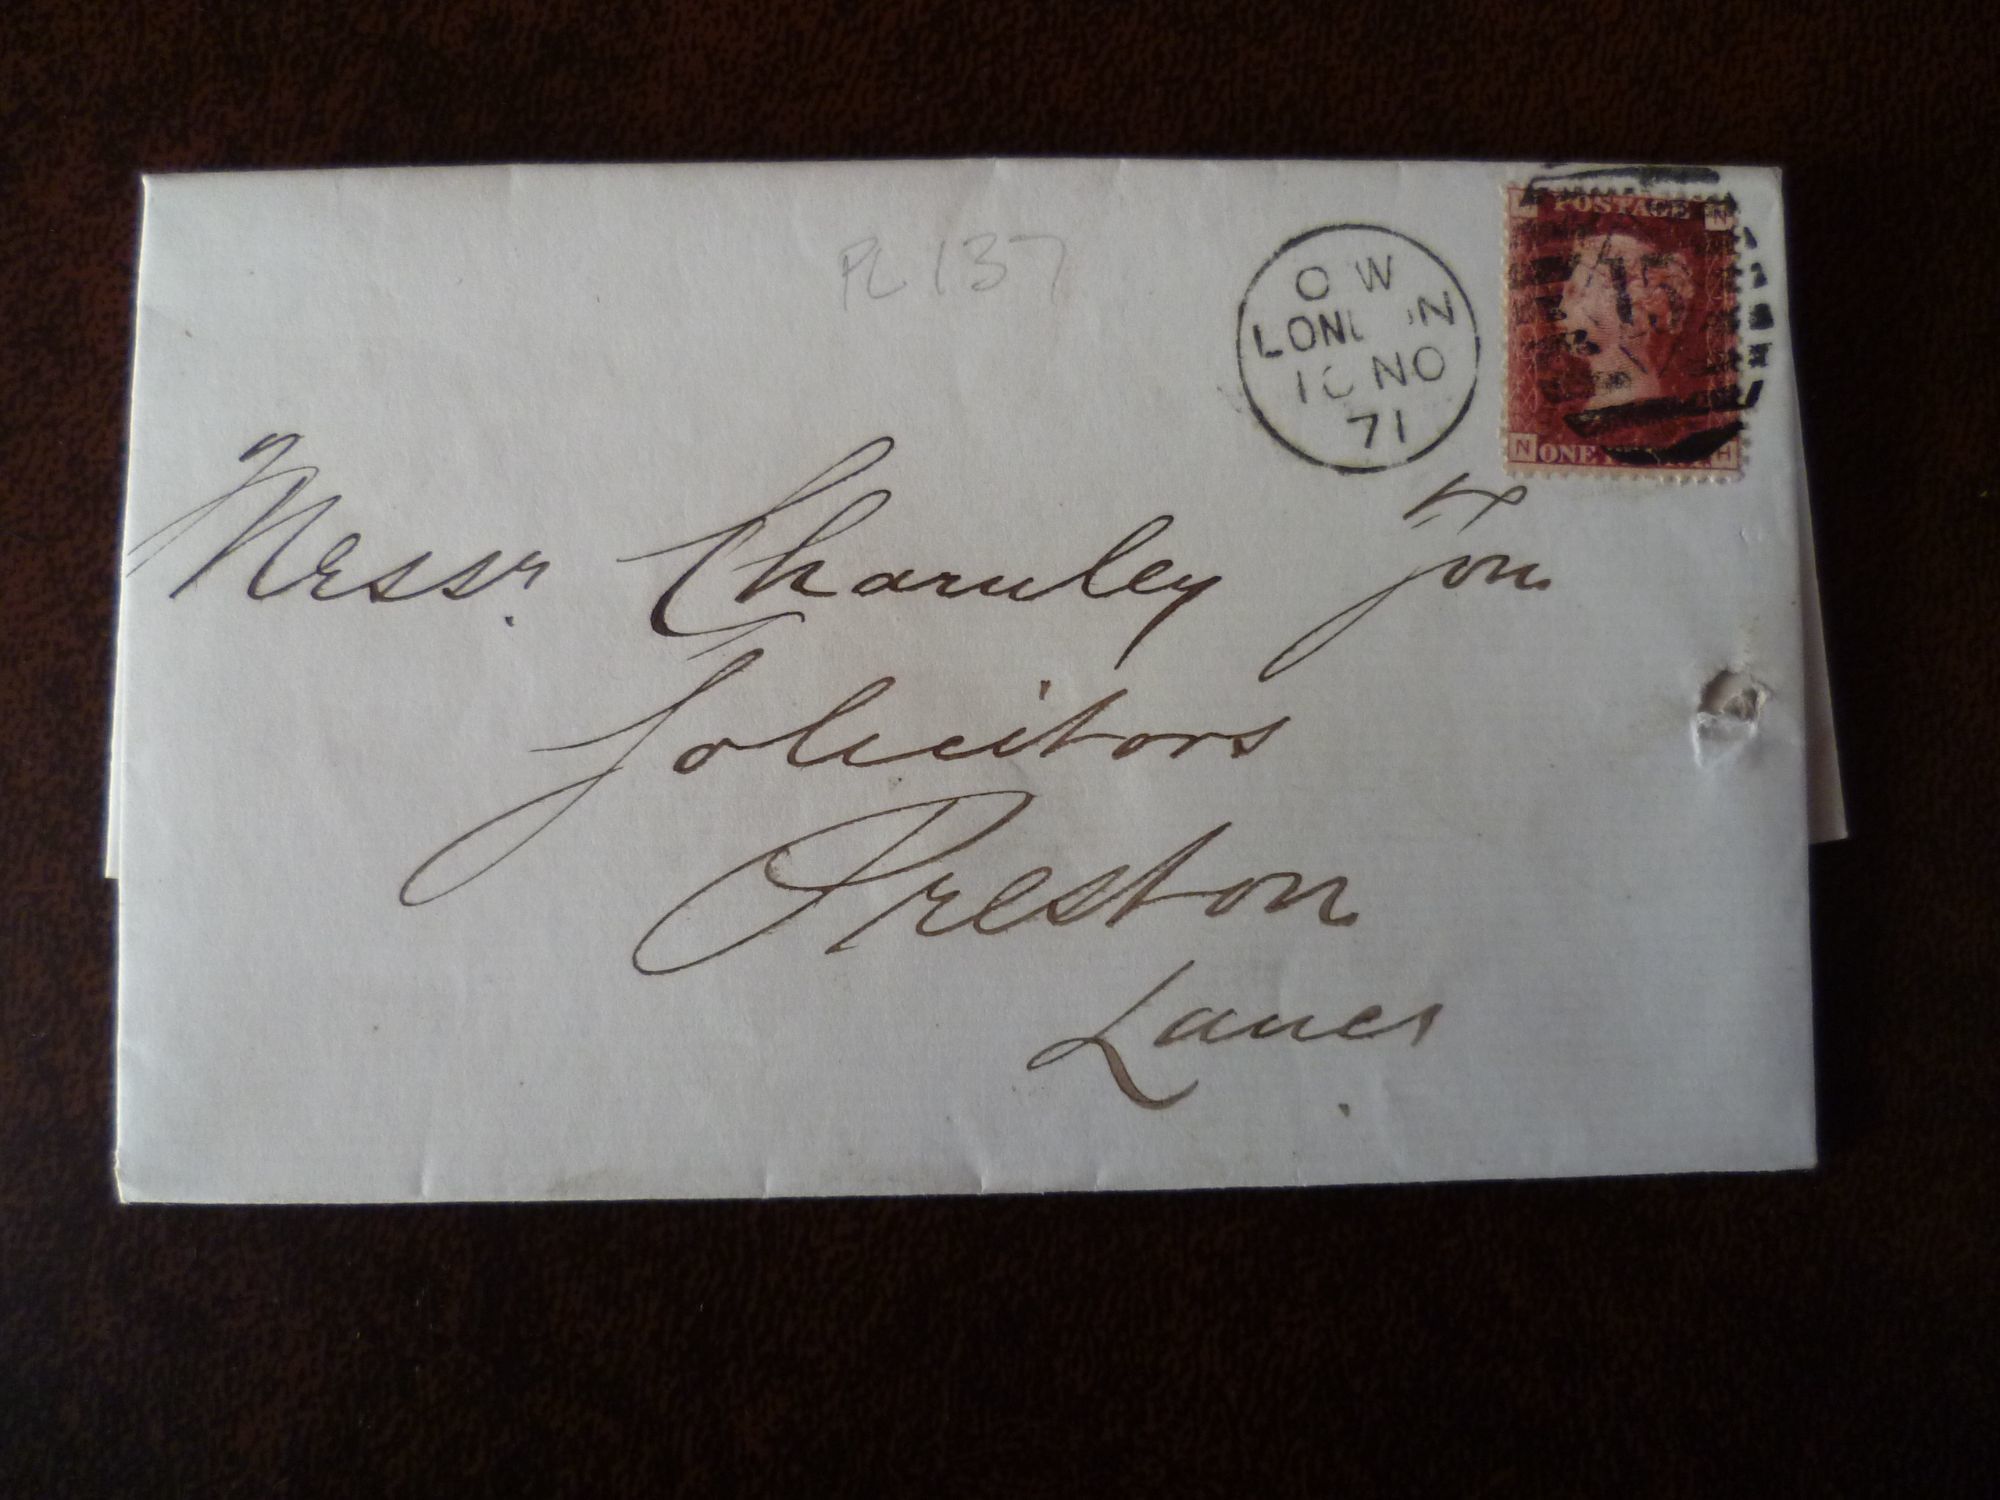 PL 137
O W
LONDON
10 NO
71
POSTAGE
N
15
N ONE PENNY H
Messr. Charnley
Solicitors
Preston
Lancs